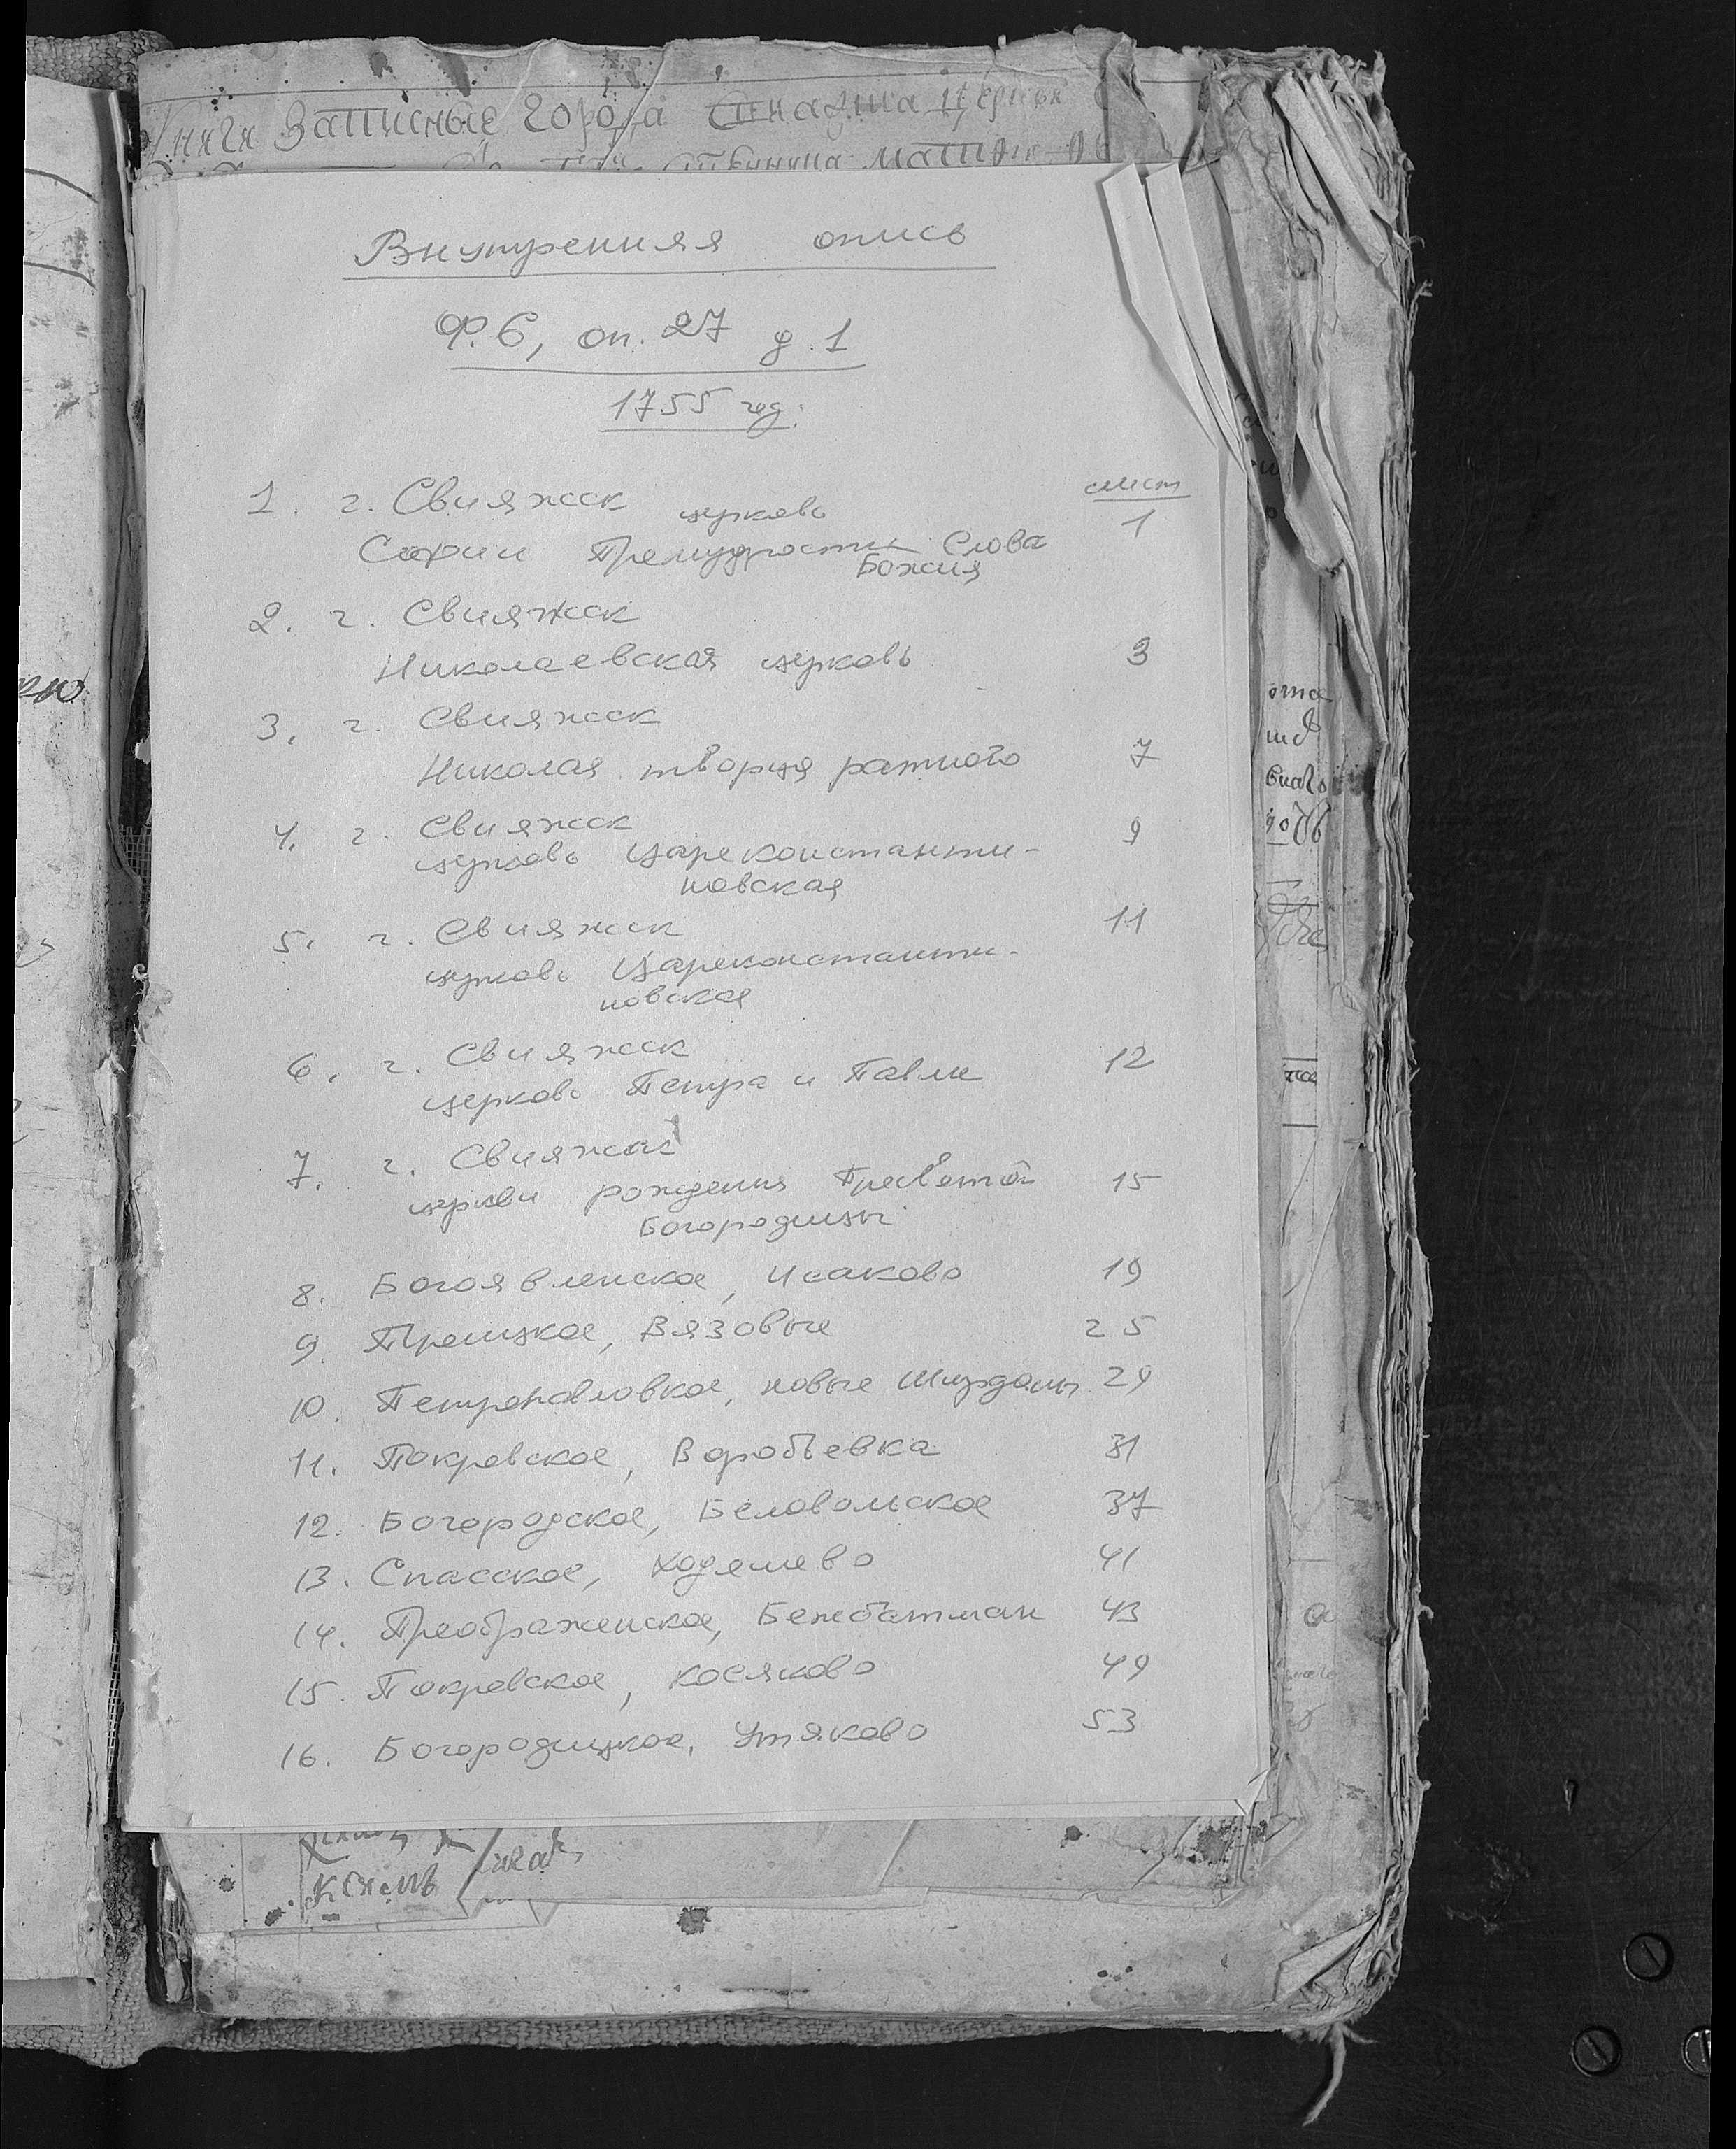 Книги Записные города
Внутренняя опись
Ф. 6, оп. 27 д. 1
1755 год.
лист
1. г. Свияжск церковь 1
Софии Премудрости Слова
Божия
2. г. Свияжск
Николаевская церковь 3
3. г. Свияжск
Николая творця ратного 7
4. г. Свияжск 9
церковь Цареконстанти-
новская
5. г. Свияжск 11
церковь Цареконстанти-
новская
6. г. Свияжск 12
церковь Петра и Павла
7. г. Свияжск
церкви рождения Пресвятой 15
Богородицы
8. Богоявленское, Исаково 19
9. Троицкое, Вязовые 25
10. Петропавловкое, новые Ширданы 29
11. Покровское, Воробьевка 31
12. Богородское, Беловолжское 37
13. Спасское, Ходяшево 41
14. Преображенское, Бежбатман 43
15. Покровское, Косяково 49
16. Богородицкое, Утяково 53